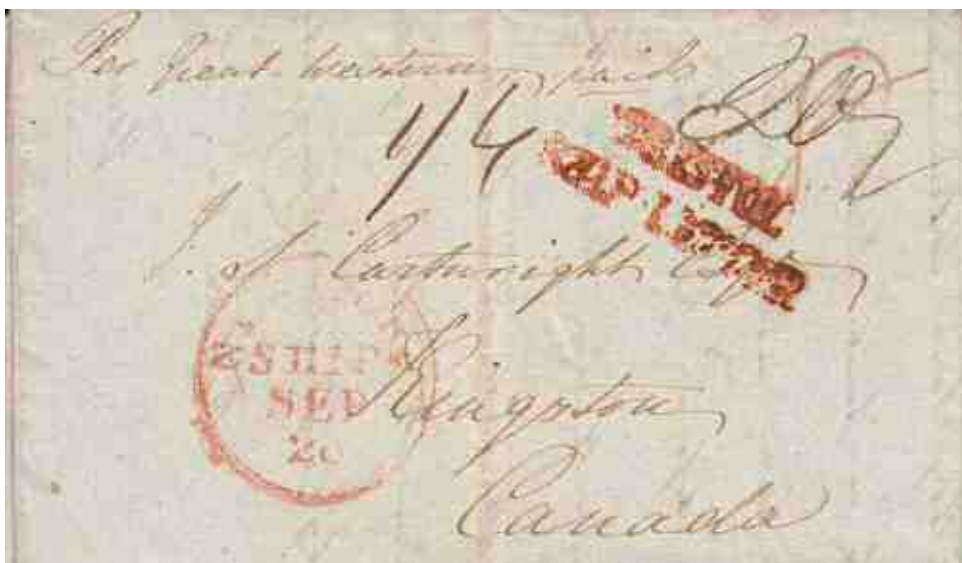 Per Great Western
1/4
BRISTOL
SHIP LETTER
J. S. Cartwright Esqr
SHIP
SEP
20
Kingston
Canada